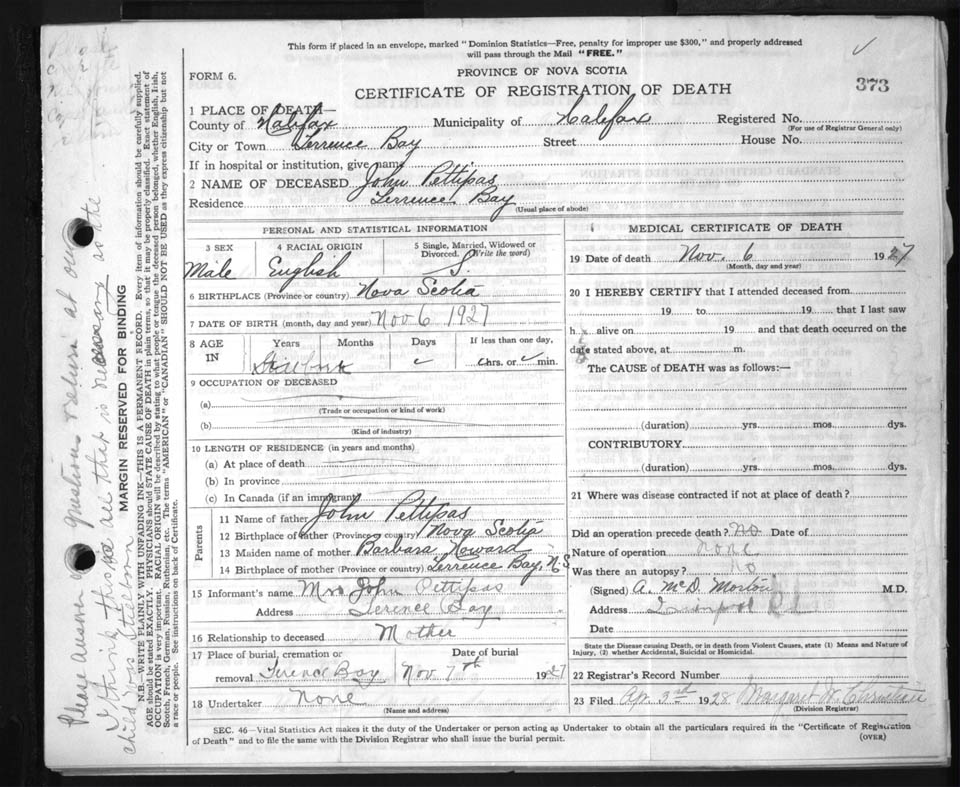 This form if placed in an envelope, marked "Dominion Statistics—Free, penalty for improper use $300," and properly addressed
will pass through the Mail "FREE."
FORM 6.
PROVINCE OF NOVA SCOTIA
CERTIFICATE OF REGISTRATION OF DEATH
373
1 PLACE OF DEATH—
County of Halifax Municipality of Halifax Registered No.
(For use of Registrar General only)
City or Town Terrence Bay Street House No.
If in hospital or institution, give name
2 NAME OF DECEASED John Pettipas
Residence Terrence Bay
(Usual place of abode)
PERSONAL AND STATISTICAL INFORMATION
3 SEX Male
4 RACIAL ORIGIN English
5 Single, Married, Widowed or Divorced. (Write the word) S.
6 BIRTHPLACE (Province or country) Nova Scotia
7 DATE OF BIRTH (month, day and year) Nov 6 1927
8 AGE IN Years Months Days If less than one day,
Stillborn hrs. or min.
9 OCCUPATION OF DECEASED
(a)
(Trade or occupation or kind of work)
(b)
(Kind of industry)
10 LENGTH OF RESIDENCE (in years and months)
(a) At place of death
(b) In province
(c) In Canada (if an immigrant)
Parents
11 Name of father John Pettipas
12 Birthplace of father (Province or country) Nova Scotia
13 Maiden name of mother Barbara Howard
14 Birthplace of mother (Province or country) Terrence Bay, N.S
15 Informant's name Mrs John Pettipas
Address Terence Bay
16 Relationship to deceased Mother
17 Place of burial, cremation or removal Terence Bay
Date of burial Nov 7th 1927
18 Undertaker None
(Name and address)
MEDICAL CERTIFICATE OF DEATH
19 Date of death Nov. 6 1927
(Month, day and year)
20 I HEREBY CERTIFY that I attended deceased from
19 to 19 that I last saw
h alive on 19 and that death occurred on the
date stated above, at m.
The CAUSE of DEATH was as follows:—
(duration) yrs. mos. dys.
CONTRIBUTORY
(duration) yrs. mos. dys.
21 Where was disease contracted if not at place of death?
Did an operation precede death? No Date of
Nature of operation none
Was there an autopsy? No
(Signed) A. McD. Morton M.D.
Address
Date
State the Disease causing Death, or in death from Violent Causes, state (1) Means and Nature of
Injury, (2) whether Accidental, Suicidal or Homicidal.
22 Registrar's Record Number
23 Filed Apr. 3rd 1928 Margaret
(Division Registrar)
SEC. 46—Vital Statistics Act makes it the duty of the Undertaker or person acting as Undertaker to obtain all the particulars required in the "Certificate of Registration
of Death" and to file the same with the Division Registrar who shall issue the burial permit.
(OVER)
MARGIN RESERVED FOR BINDING
N.B.—WRITE PLAINLY WITH UNFADING INK—THIS IS A PERMANENT RECORD. Every item of information should be carefully supplied.
AGE should be stated EXACTLY. PHYSICIANS should STATE CAUSE OF DEATH in plain terms, so that it may be properly classified. Exact statement of
OCCUPATION is very important. RACIAL ORIGIN will be described by stating to what people or tongue the deceased person belonged, whether English, Irish,
Scotch, French, German, Russian, Ruthenian, etc. The terms "AMERICAN" or "CANADIAN" SHOULD NOT BE USED as they express citizenship but not
a race or people. See instructions on back of Certificate.
Please answer questions return at once
I think those are all that is necessary as the
child was stillborn